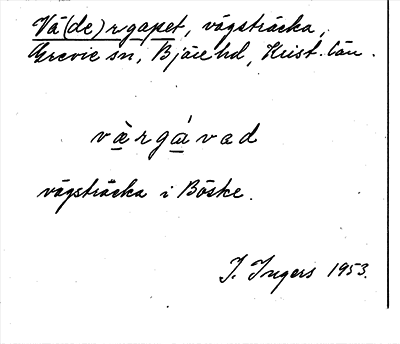 Vä(de)rgapet, vägsträcka,
Grevie sn, Bjäre hd, Krist. län.
værgávad
vägsträcka i Böske.
I. Ingers 1953.